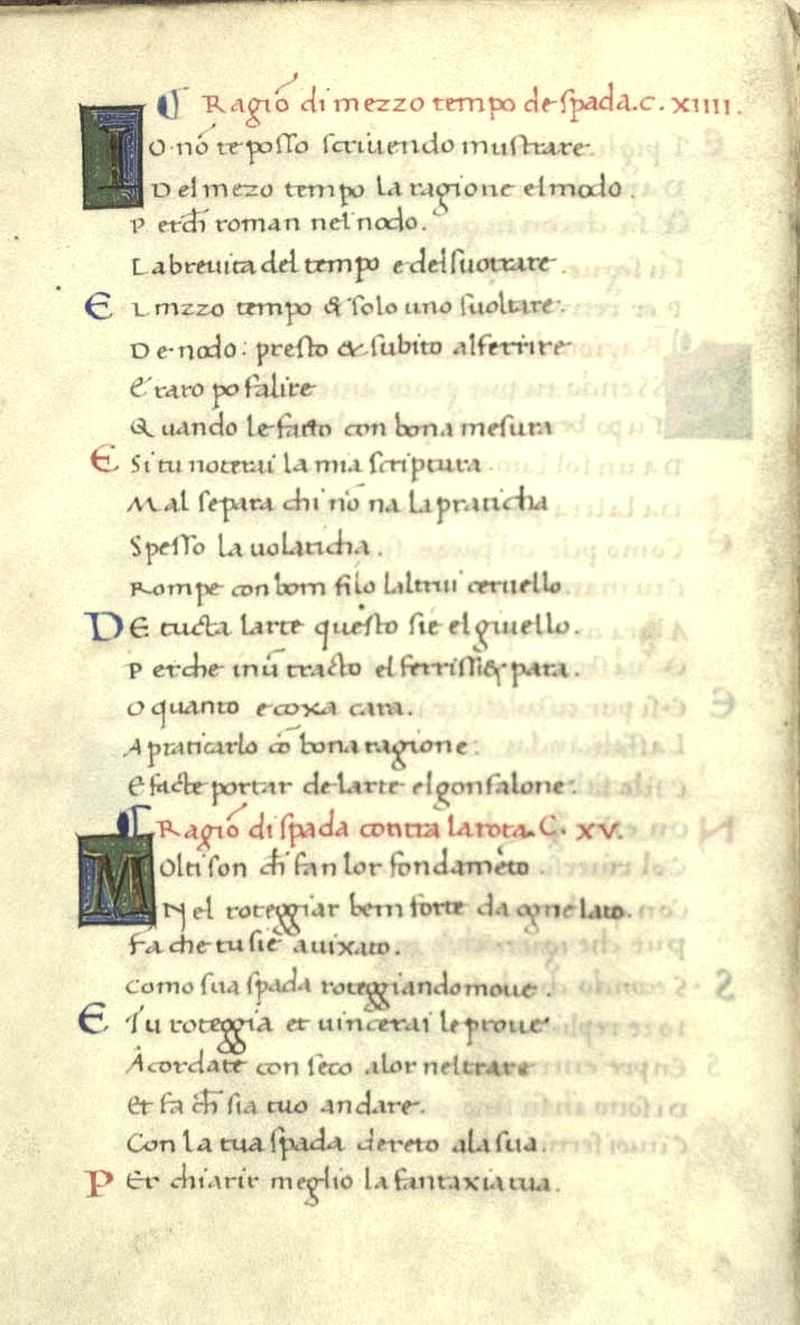 ¶ Ragiō di mezzo tempo de spada. c. xiiii.
IO nō te posso scriuendo mustrare
Del mezo tempo la ragione el modo.
Perch̄ roman nel nodo.
La breuita del tempo e del suo trare.
EL mezzo tempo & solo uno suoltare.
De nodo: presto & subito al ferrire
E raro po falire
Quando le facto con bona mesura
ESi tu noterai la mia scriptura
Mal se para chi nō na la praticha
Spesso la uolaticha.
Rompe con bom filo laltrui ceruello.
DE tucta larte questo sie el giuello.
Perche inū tracto el ferrissi & para.
O quanto e coxa cara.
A praticarlo cō bona ragione:
E facte portar de larte el gonfalone:
¶ Ragiō di spada contra la rota. C. XV.
MOlti son ch̄ fan lor fondamēto.
Nel roteggiar bem forte da ogne lato.
Fa che tu sie auixato.
Como sua spada roteggiando moue.
E Tu roteggia et uincerai le proue
Acordate con seco alor nel trare
Et fa ch̄ sia tuo andare.
Con la tua spada dereto ala sua.
PEr chiarir meglio la fantaxia tua.